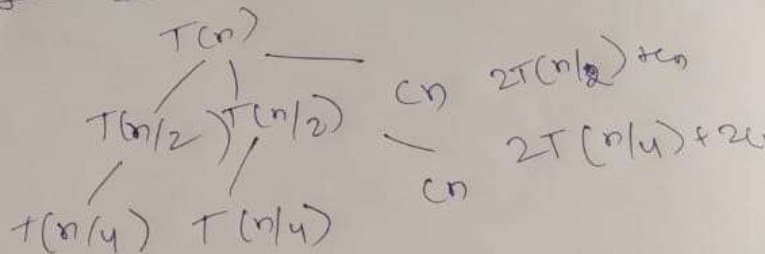 T(n)
cn 2T(n/2) + cn
T(n/2) T(n/2)
cn 2T(n/4) + 2c
T(n/4) T(n/4)